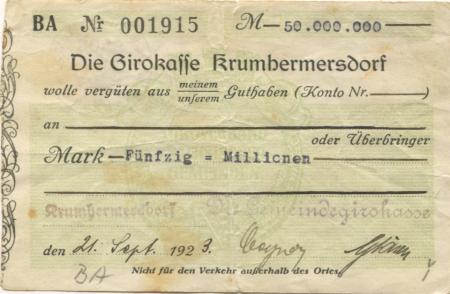 BA № 001915 M— 50.000.000 —
Die Girokasse Krumhermersdorf
wolle vergüten aus meinem/unserem Guthaben (Konto Nr.——)
an
oder Überbringer
Mark —Fünfzig = Millionen—
Krumhermersdorf Die Gemeindegirokasse
den 21. Sept. 1923.
BA Nicht für den Verkehr außerhalb des Ortes.